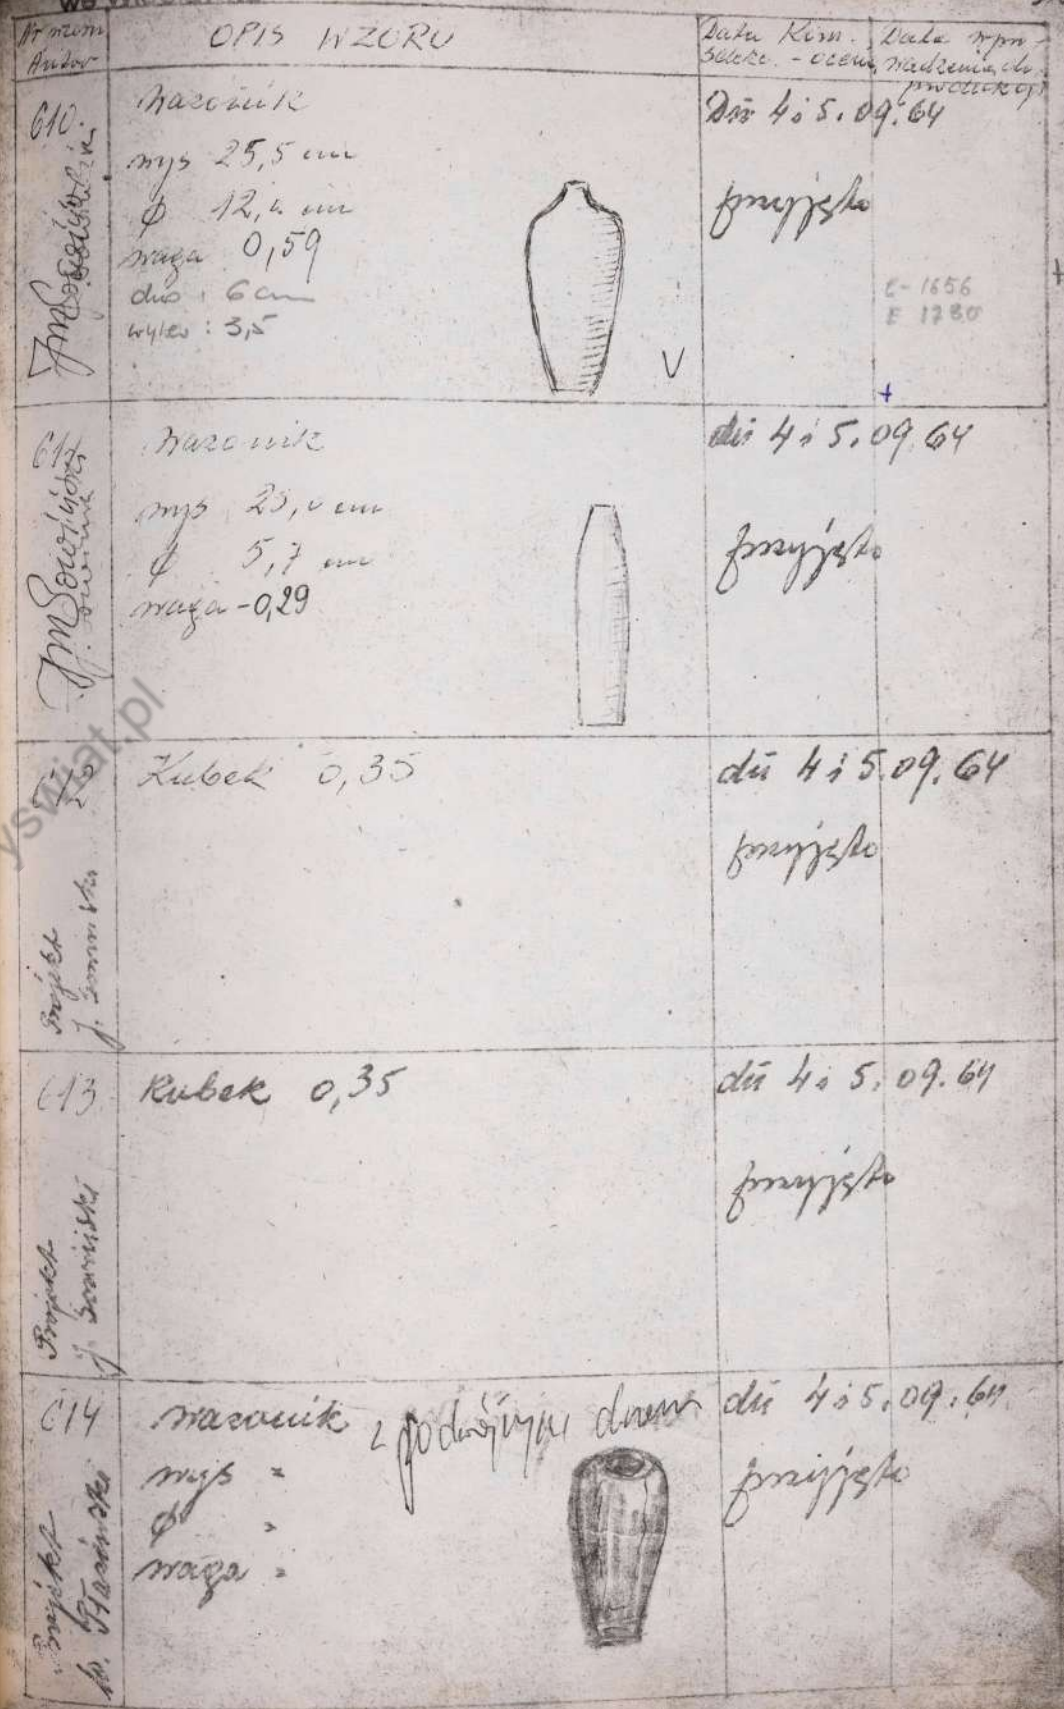 Nr wzoru
Autor
OPIS WZORU
Data Kom.
Selekc. - ocena
Data wpro-
wadzenia do
produkcji
610.
Wazonik
wys 25,5 cm
ø 12, cm
waga 0,59
dno : 6 cm
wylew : 3,5
V
Dn 4 i 5. 09. 64
przyjęto
E-1656
E 1780
+
611
Wazonik
wys 25,0 cm
ø 5,7 cm
waga - 0,29
dn 4 i 5. 09. 64
przyjęto
Kubek 0,35
dn 4 i 5. 09. 64
przyjęto
Projekt
J.
613
Kubek 0,35
dn 4 i 5. 09. 64
przyjęto
Projekt
J.
614
Wazonik z podwójnym dnem
wys =
ø =
waga =
dn 4 i 5. 09. 64
przyjęto
Projekt
yswiat.pl